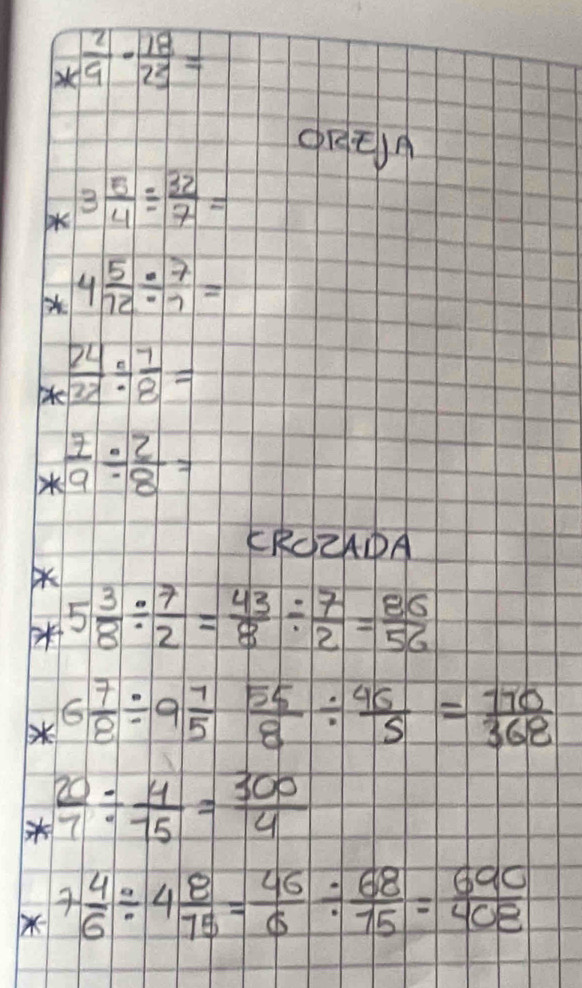 * 2/9 - 18/25 =
OREJA
* 3 5/4 ÷ 32/7 =
* 4 5/12 ÷ 7/1 =
* 24/22 ÷ 1/8 =
* 7/9 ÷ 2/8 =
CROZADA
*
* 5 3/8 ÷ 7/2 = 43/8 ÷ 7/2 = 86/56
* 6 7/8 ÷ 9 1/5 55/8 ÷ 46/5 = 110/368
* 20/1 ÷ 4/15 = 300/4
* 7 4/6 ÷ 4 8/15 = 46/6 ÷ 68/15 = 690/408